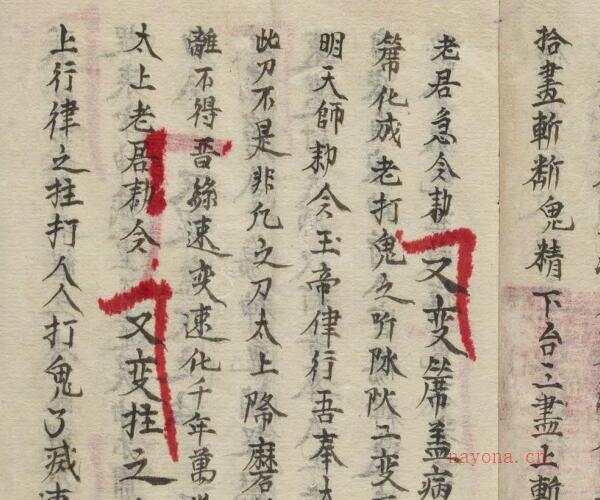 拾畫斬断鬼精下台三畫上斬
老君急令勅又变蓆盖病
蓆化成老打鬼之所 工变
明天師勅令玉帝律行吾奉
此刀不是非凡之刀太上降麿
離不得 絲速变速化千年萬
太上老君勅令又变拄之
上行律之拄打人人打鬼了灭
nayona.cn